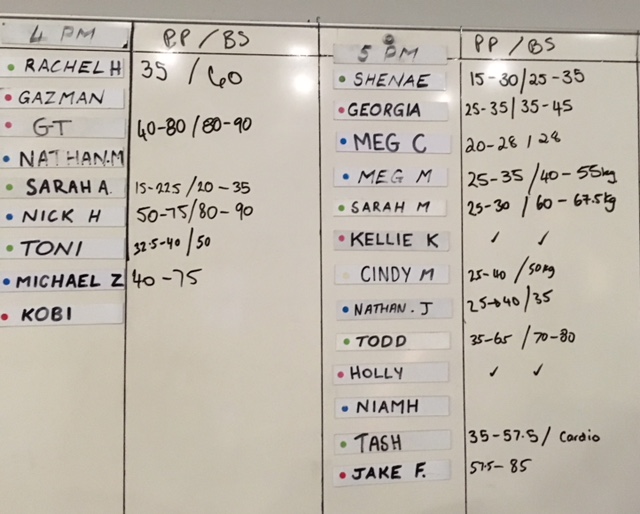 4 PM PP / BS
RACHEL H 35 / 60
GAZMAN
GT 40-80 / 80-90
NATHAN.M
SARAH A. 15-22.5 / 20-35
NICK H 50-75/80-90
TONI 32.5-40 / 50
MICHAEL Z 40-75
KOBI
5 PM PP / BS
SHENAE 15-30/25-35
GEORGIA 25-35/35-45
MEG C 20-28 / 28
MEG M 25-35 / 40-55kg
SARAH M 25-30 / 60-67.5kg
KELLIE K ✓ ✓
CINDY M 25-40 / 50kg
NATHAN.J 25→40 / 35
TODD 35-65 / 70-80
HOLLY ✓ ✓
NIAMH
TASH 35-57.5 / Cardio
JAKE F. 57.5-85